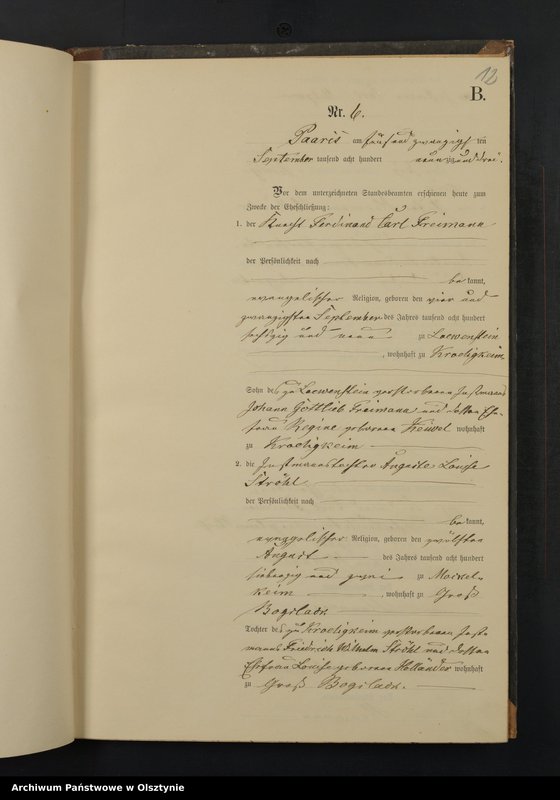 12
B.
Nr. 6.
Paaris am fünf und zwanzigsten
September tausend acht hundert neunzig und drei.
Vor dem unterzeichneten Standesbeamten erschienen heute zum
Zwecke der Eheschließung:
1. der Knecht Ferdinand Carl Freimann
der Persönlichkeit nach
bekannt,
evangelischer Religion, geboren den vier und
zwanzigsten September des Jahres tausend acht hundert
sechszig und neun zu Loewenstein
, wohnhaft zu Kroeligkeim
Sohn des zu Loewenstein verstorbenen Instmanns
Johann Gottlieb Freimann und dessen Ehe-
frau Regine geborenen wohnhaft
zu Kroeligkeim
2. die Instmannstochter Auguste Louise
Ströhl
der Persönlichkeit nach
bekannt,
evangelischer Religion, geboren den zwölften
August des Jahres tausend acht hundert
siebenzig und zwei zu Meckel-
, wohnhaft zu Groß
Bogslack
Tochter des zu Kroeligkeim verstorbenen Inst-
manns Friedrich Wilhelm Ströhl und dessen
Ehefrau Louise geborenen Holländer wohnhaft
zu Groß Bogslack.
Archiwum Państwowe w Olsztynie